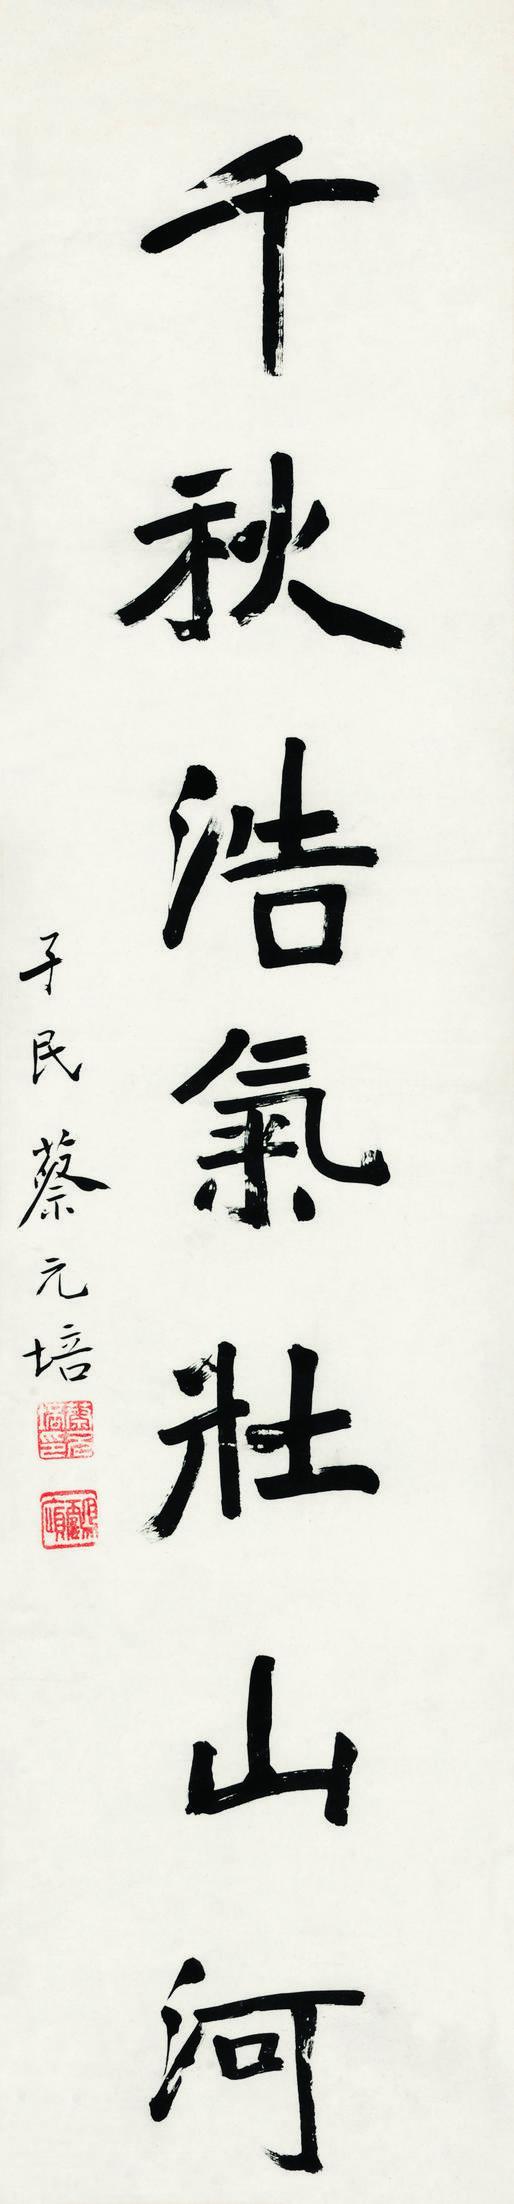 千秋浩氣壯山河
子民蔡元培